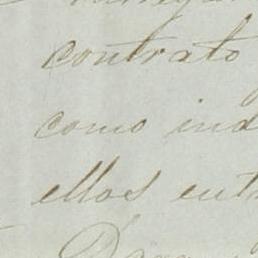 contrato
como ind
ellos ent